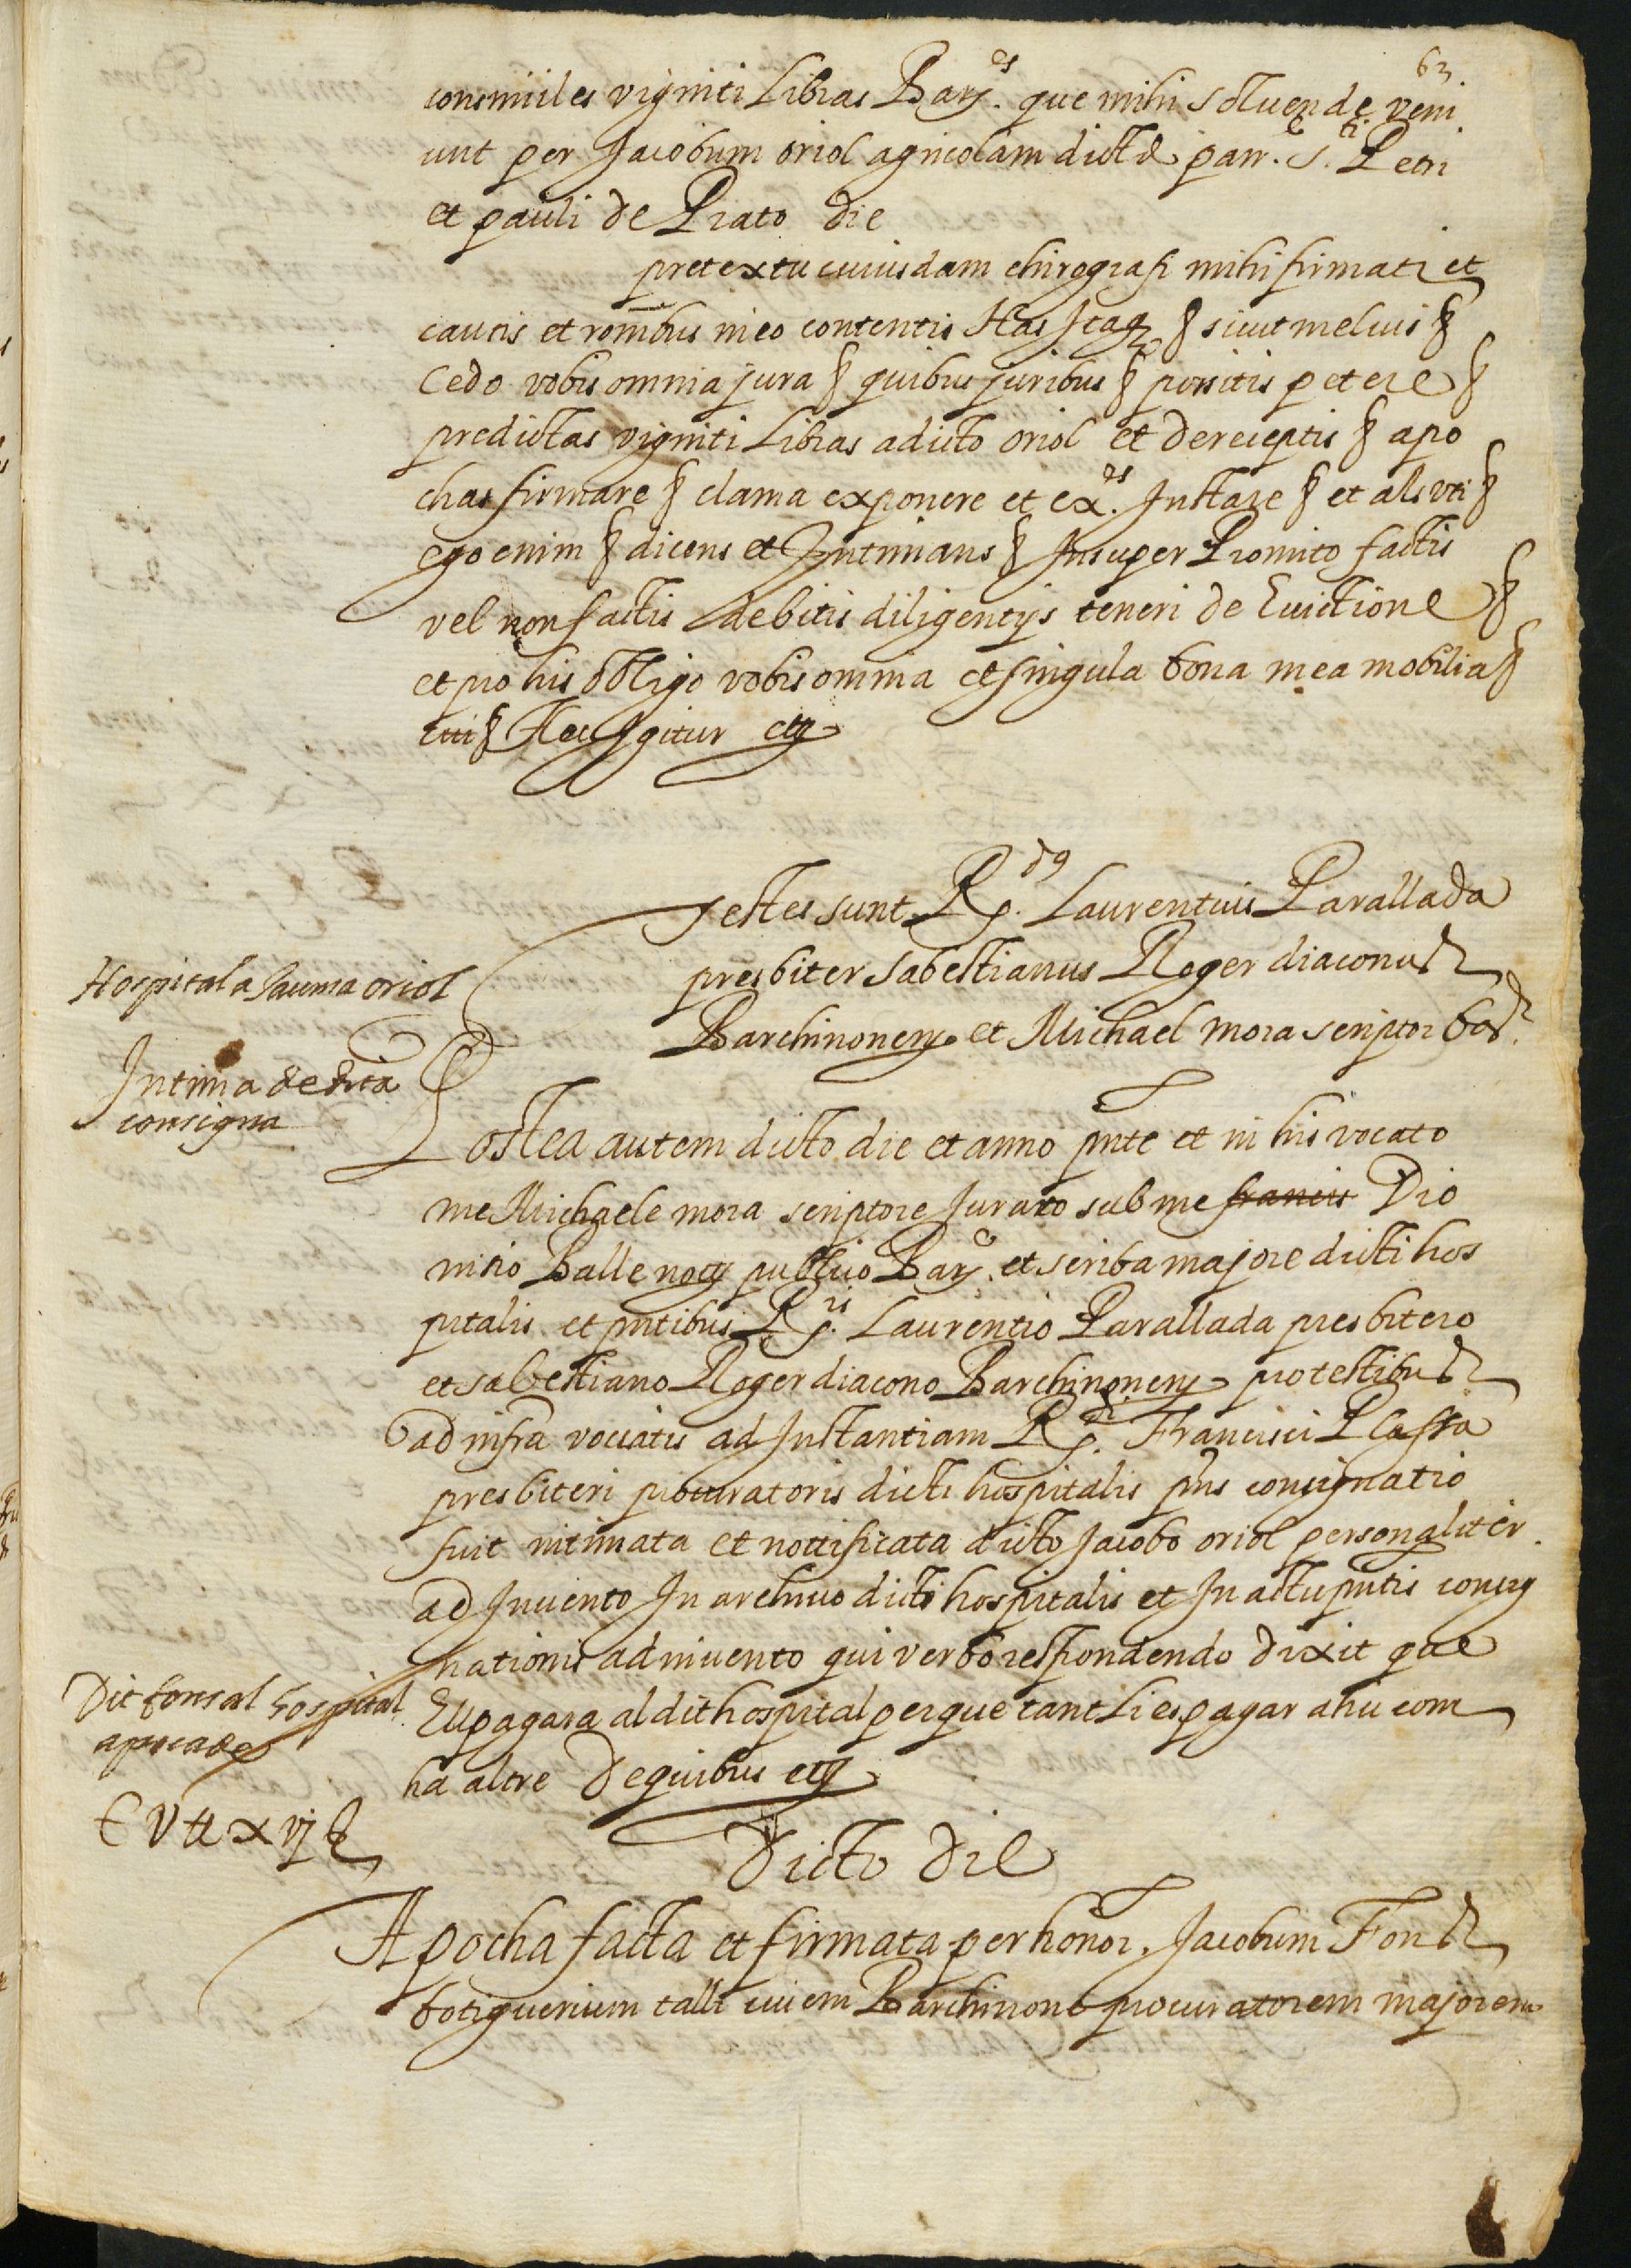 63.
consimiles viginti libras Barẽs. que mihi soluende veni
unt per Jacobum oriol agricolam dicte parr.e s.ti Petri
et pauli de Prato die
pretextu cuiusdam chirografi mihi firmati et
causis et ronibus in eo contentis Has Itaq § sicut melius §
Cedo vobis omnia jura § quibus juribus § possitis petere §
predictas viginti libras a dicto oriol et de receptis § apo
chas firmare § clama exponere et ex.es Instare § et als uti §
ego enim § dicens et Intimans § Insuper Promito factis
vel non factis debitis diligentijs teneri de Euictione §
et pro his obligo vobis omnia et singula bona mea mobilia §
etti § Actu Igitur etc
Testes sunt R.dus Laurentius Parallada
presbiter sabestianus Roger diaconus
Barchinonens et Michael mora scriptor bar
Hospital a Jauma oriol
Intima de dita
consigna
Postea autem dicto die et anno pnte et in his vocato
me Michaele mora scriptore Jurato sub me francis Dio
nisio Balle noty publico Bar.e et scriba majore dicti hos
pitalis et pntibus R.is Laurentio Parallada presbitero
et sabestiano Roger diacono Barchinonens pro testibus
ad infra vocatis ad Instantiam R.di Francisci Plassa
presbiteri procuratoris dicti hospitalis pns consignatio
fuit intimata et nottificata dicto Jacobo oriol personaliter
ad Inuento In archiuo dicti hospitalis et In actu pntis consig
nationis ad inuento qui verbo respondendo dixit que
Ell pagara al dit hospital per que tant li es pagar a hu com
ha altre De quibus etc
Dit fons al hospital
apoca de
£ V tt x vj §
Dicto Die
Apocha facta et firmata per honor. Jacobum Fons
botiguerium tall ciuem Barchinone procuratorem majorem